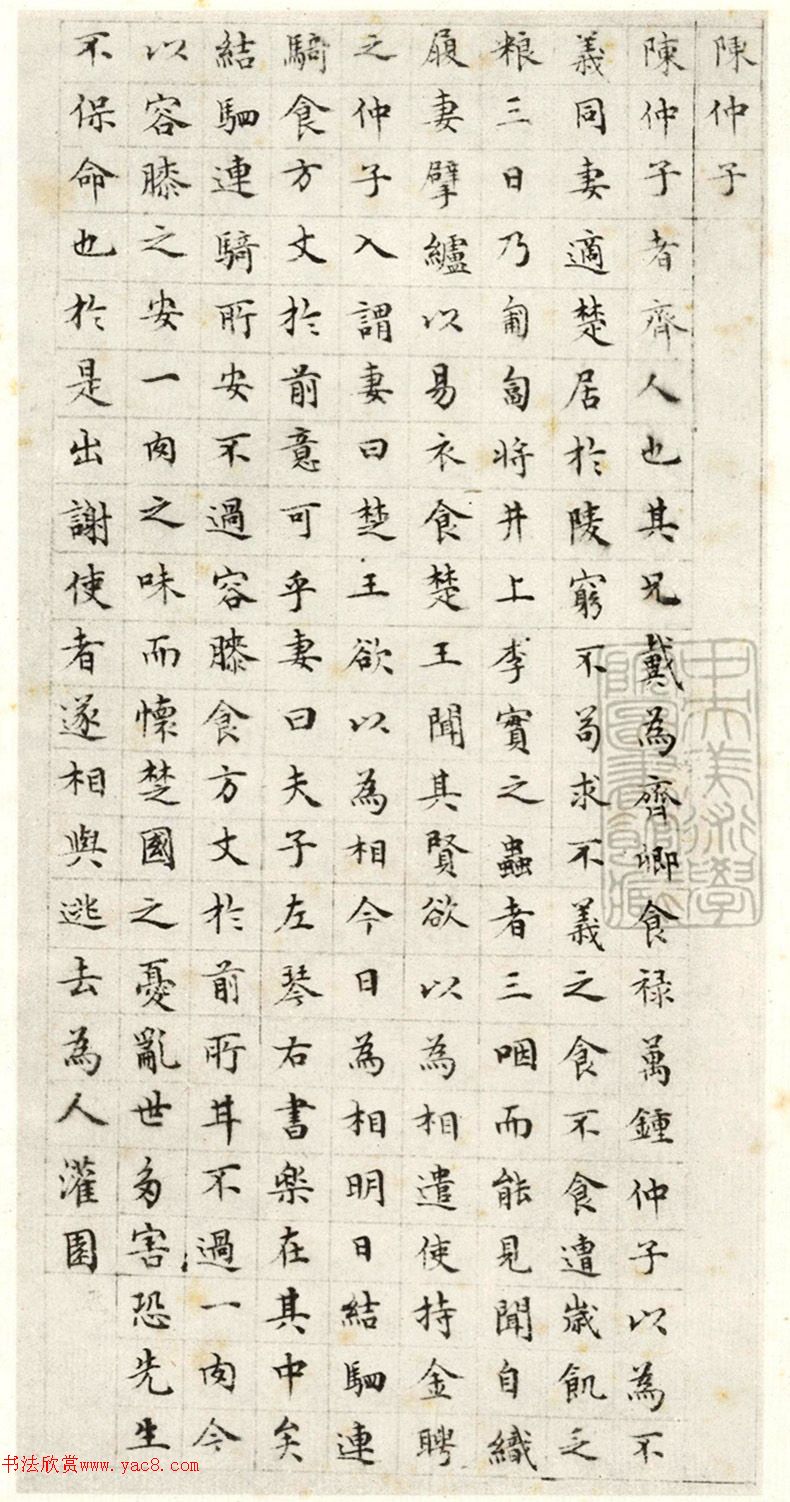 陳仲子
陳仲子者齊人也其兄戴為齊卿食祿萬鍾仲子以為不
義同妻適楚居於陵窮不苟求不義之食不食遭歲飢乏
粮三日乃匍匐將井上李實之蟲者三咽而能見聞自織
履妻擘纑以易衣食楚王聞其賢欲以為相遣使持金聘
之仲子入謂妻曰楚王欲以為相今日為相明日結駟連
騎食方丈於前意可乎妻曰夫子左琴右書樂在其中矣
結駟連騎所安不過容膝食方丈於前所甘不過一肉今
以容膝之安一肉之味而懷楚國之憂亂世多害恐先生
不保命也於是出謝使者遂相與逃去為人灌園
中央美術學
院圖書館藏
书法欣赏www.yac8.com